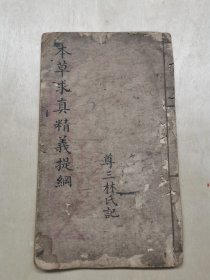 本草求真精義提綱
尊三林氏記